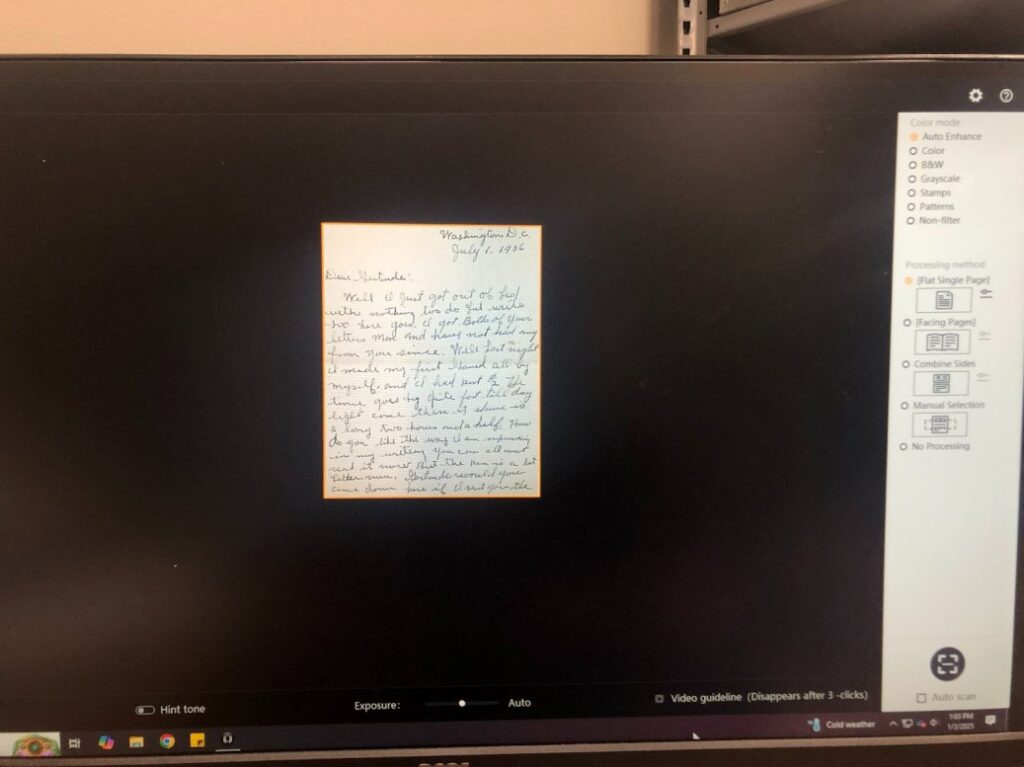 Color mode
Auto Enhance
Color
B&W
Grayscale
Stamps
Patterns
Non-filter
Processing method
[Flat Single Page]
[Facing Pages]
Combine Sides
Manual Selection
No Processing
Washington D.C.
July 1, 1936
Dear Gertrude:
Well I just got out of bed
with nothing too do but write
too here you. I got Both of your
letters Mon and have not had any
from you since. Well last night
I made my first round all by
myself. and I had
time goes by quite fast till day
light come there it seems so
a long two hours and a half. How
do you like the way I am improving
in my writing you can all most
read it now But the pen is a lot
better now. Gertrude would you
come down here if I sent you the
Hint tone
Exposure:
Auto
Video guideline (Disappears after 3 -clicks)
Auto scan
Cold weather
1:03 PM
1/3/2025